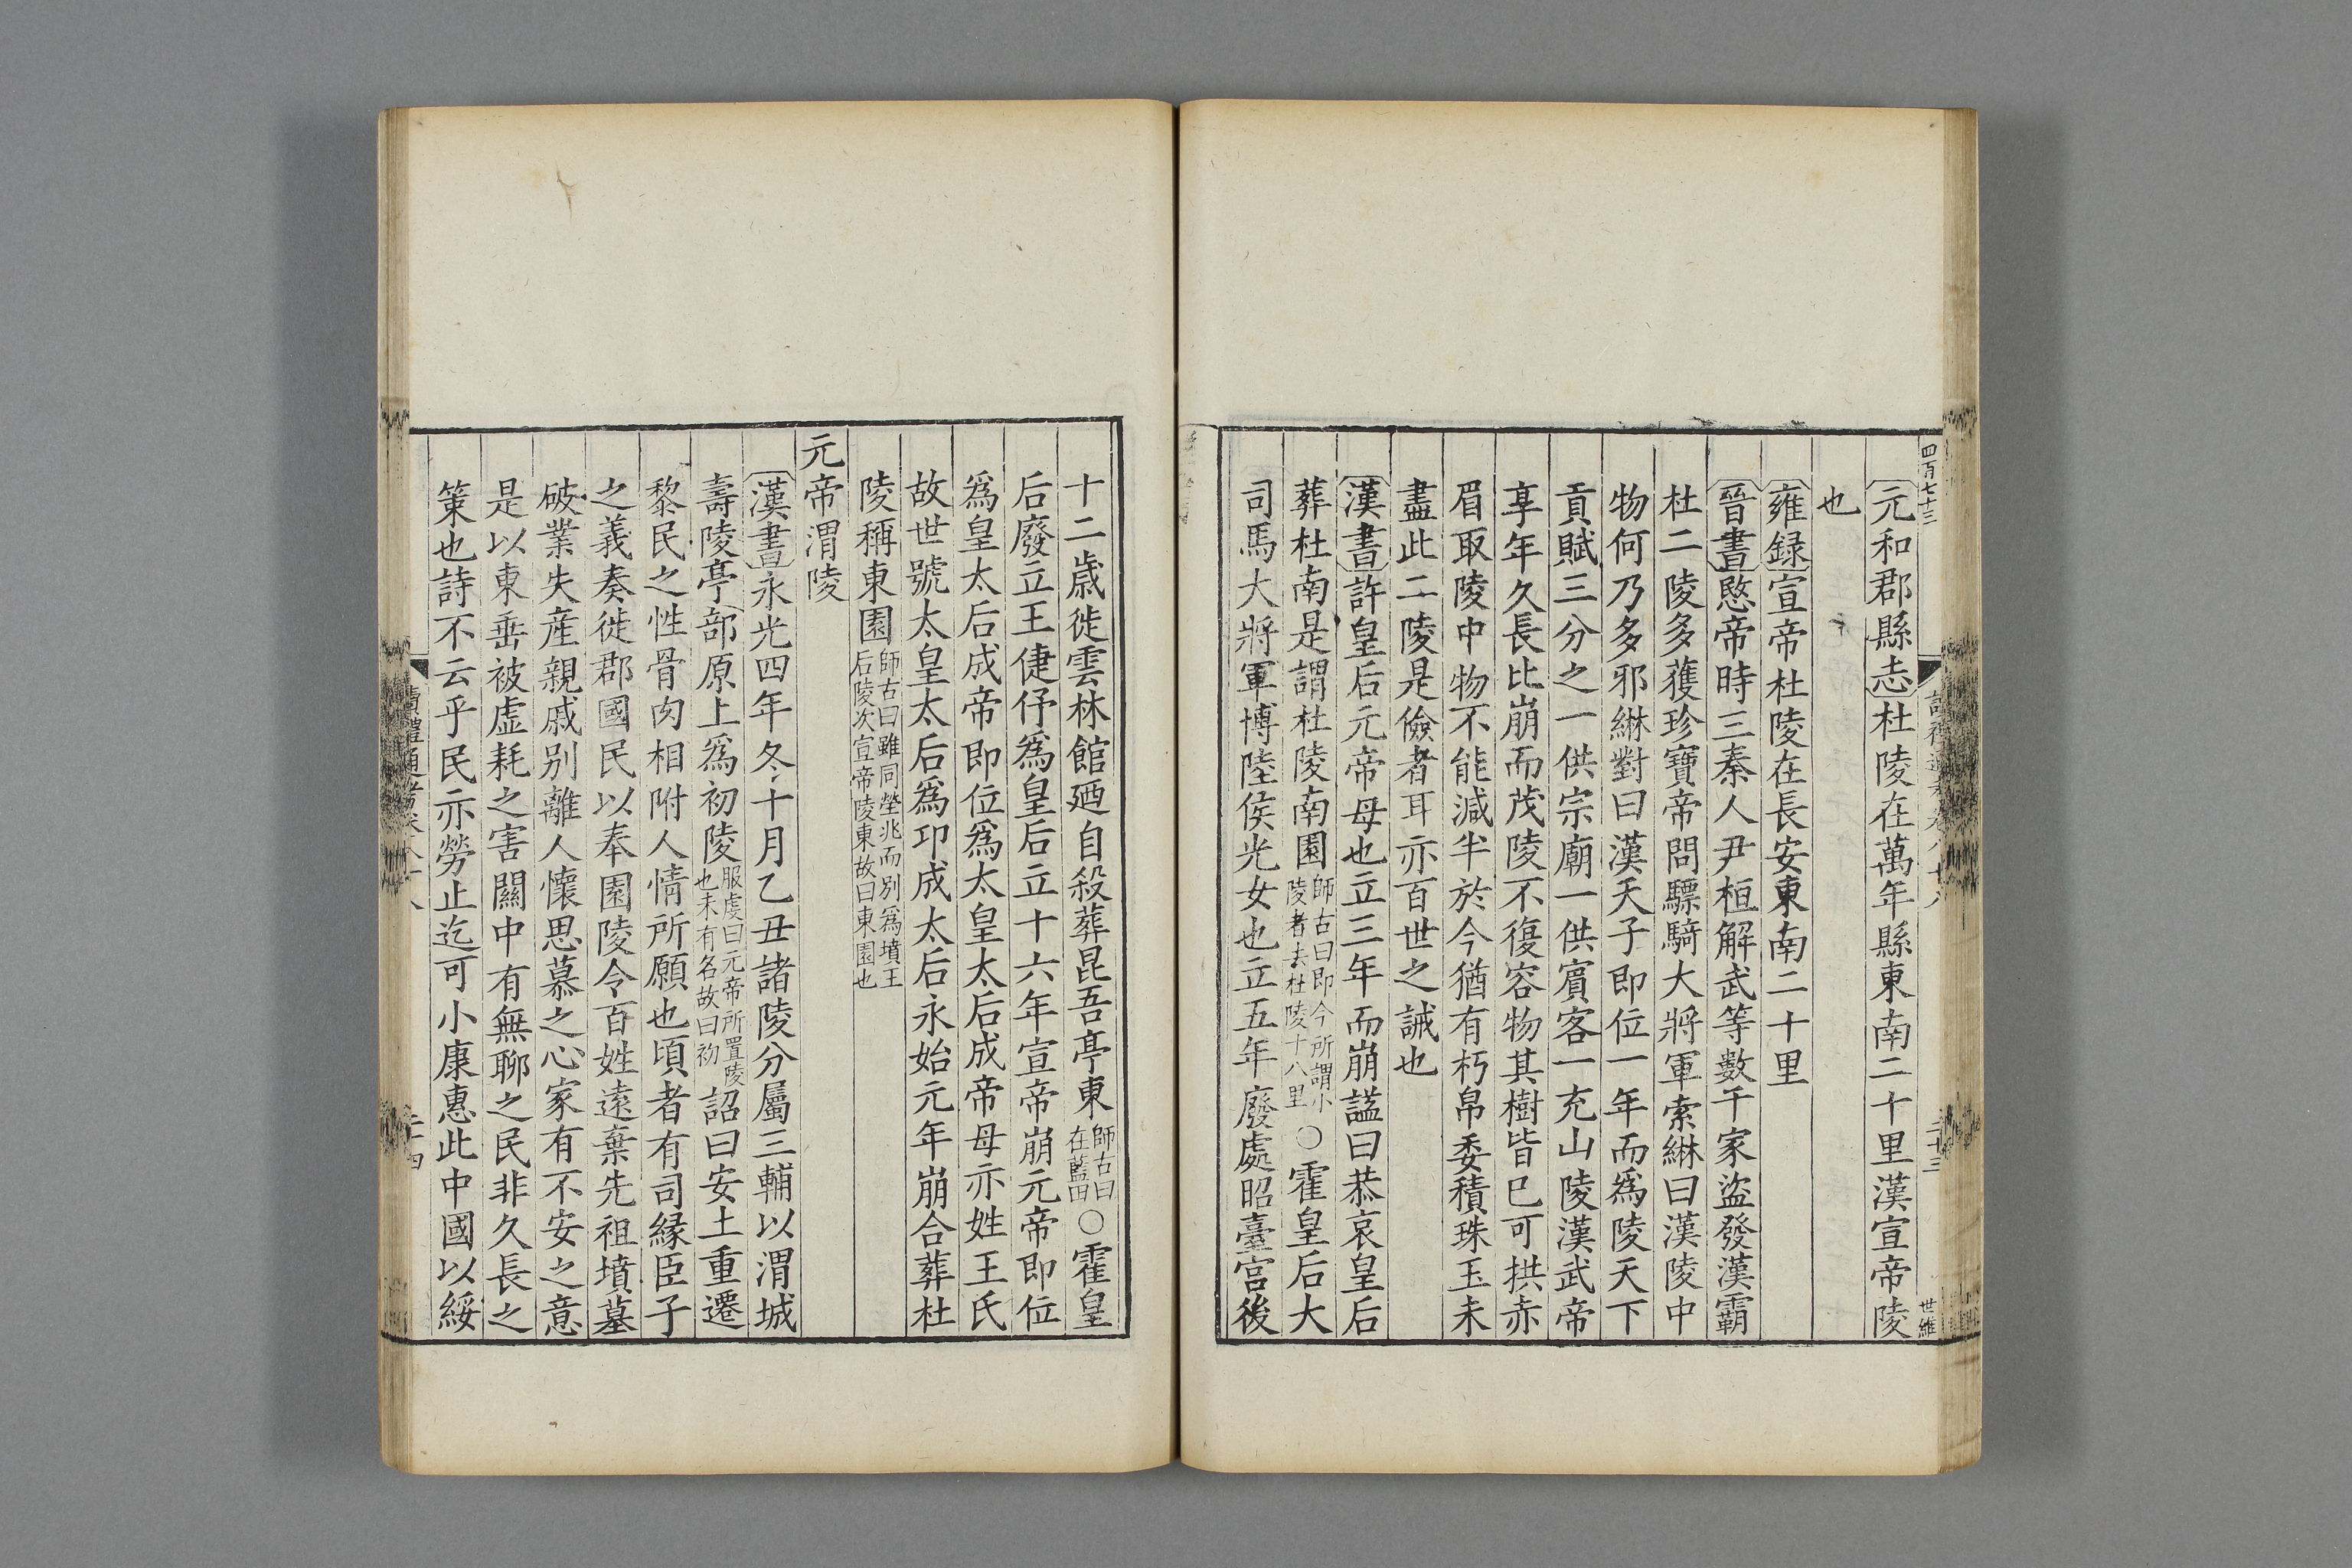 四百七十三
元和郡縣志杜陵在萬年縣東南二十里漢宣帝陵
也
雍録宣帝杜陵在長安東南二十里
晉書愍帝時三秦人尹桓解武等數千家盜發漢霸
杜二陵多獲珍寶帝問驃騎大將軍索綝曰漢陵中
物何乃多邪綝對曰漢天子即位一年而爲陵天下
貢賦三分之一供宗廟一供賓客一充山陵漢武帝
享年久長比崩而茂陵不復容物其樹皆已可拱赤
眉取陵中物不能減半於今猶有朽帛委積珠玉未
盡此二陵是儉者耳亦百世之誡也
漢書許皇后元帝母也立三年而崩謚曰恭哀皇后
葬杜南是謂杜陵南園師古曰即今所謂小陵者去杜陵十八里○霍皇后大
司馬大將軍博陸侯光女也立五年廢處昭臺宮後
世維
十二歲徙雲林館廼自殺葬昆吾亭東師古曰在藍田○霍皇
后廢立王倢伃爲皇后立十六年宣帝崩元帝即位
爲皇太后成帝即位爲太皇太后成帝母亦姓王氏
故世號太皇太后爲邛成太后永始元年崩合葬杜
陵稱東園師古曰雖同塋兆而别爲墳王后陵次宣帝陵東故曰東園也
元帝渭陵
漢書永光四年冬十月乙丑諸陵分屬三輔以渭城
壽陵亭部原上爲初陵服虔曰元帝所置陵也未有名故曰初詔曰安土重遷
黎民之性骨肉相附人情所願也頃者有司縁臣子
之義奏徙郡國民以奉園陵令百姓遠棄先祖墳墓
破業失産親戚别離人懷思慕之心家有不安之意
是以東垂被虛耗之害關中有無聊之民非久長之
策也詩不云乎民亦勞止迄可小康惠此中國以綏